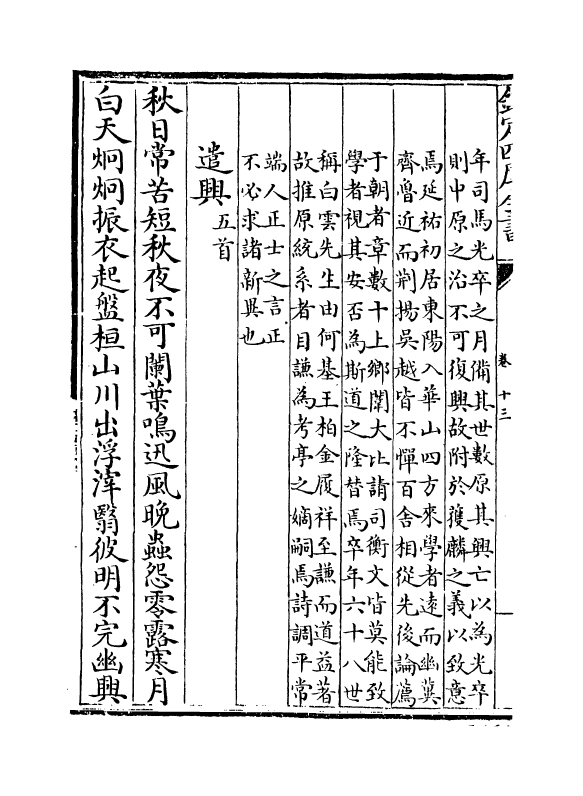 欽定四庫全書
卷十三
年司馬光卒之月備其世數原其興亡以為光卒
則中原之治不可復興故附於獲麟之義以致意
焉延祐初居東陽入華山四方來學者遠而幽冀
齊魯近而荆揚吳越皆不憚百舍相從先後論薦
于朝者章數十上鄉闈大比請司衡文皆莫能致
學者視其安否為斯道之隆替焉卒年六十八世
稱白雲先生由何基王柏金履祥至謙而道益著
故推原統系者目謙為考亭之嫡嗣焉詩調平常
端人正士之言正
不必求諸新異也
遣興五首
秋日常苦短秋夜不可闌葉鳴迅風晚蟲怨零露寒月
白天炯炯振衣起盤桓山川出浮滓翳彼明不完幽興